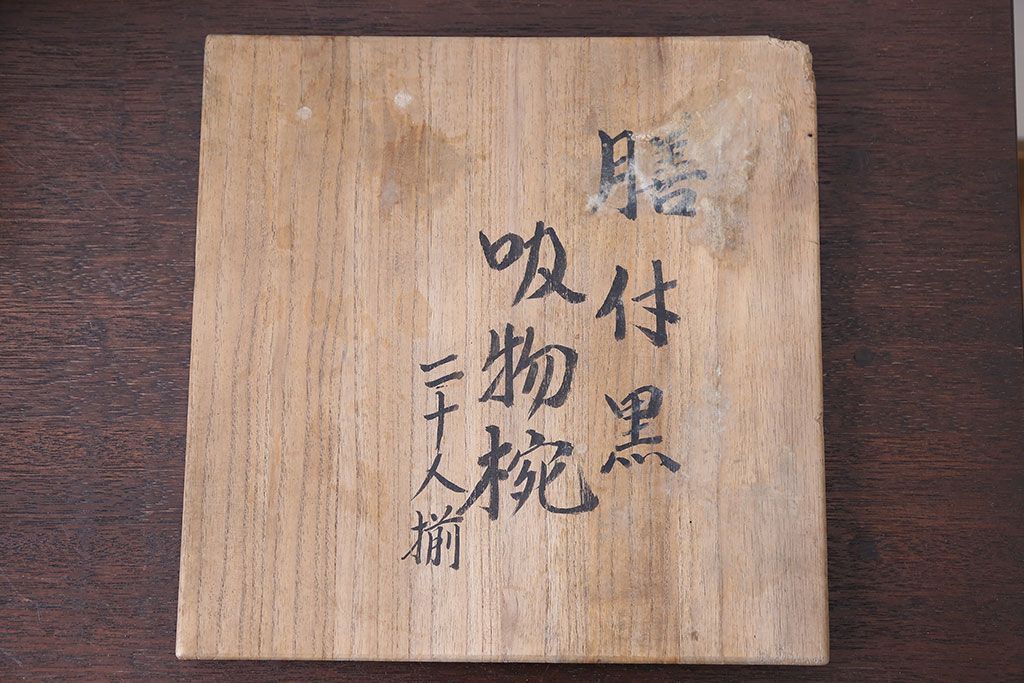 膳付黒
吸物椀
二十人揃